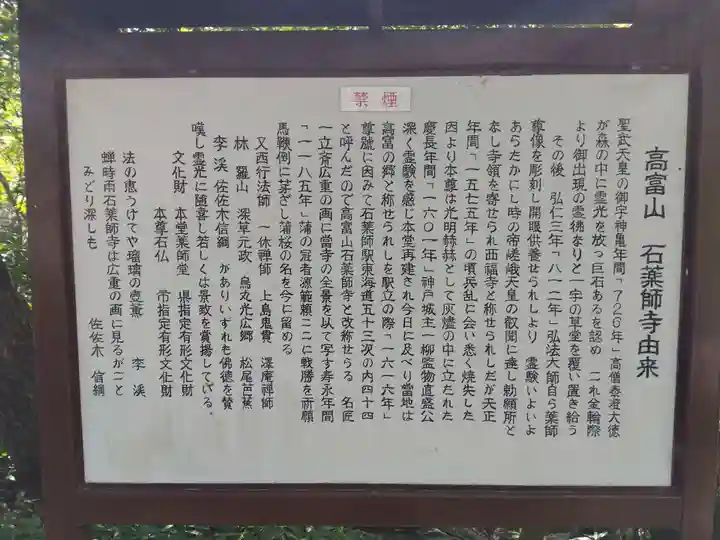 禁煙
高富山　石薬師寺由来
聖武天皇の御宇神亀年間「726年」高僧泰澄大徳
が森の中に霊光を放つ巨石あるを認め　これ金輪際
より御出現の霊佛なりと一宇の草堂を覆い置き給う
その後　弘仁三年「八一二年」弘法大師自ら薬師
尊像を彫刻し開眼供養せられしより　霊験いよいよ
あらたかにし時の帝嵯峨天皇の叡聞に達し勅願所と
なし寺領を寄せられ西福寺と称せられしだが天正
年間「一五七五年」の頃兵乱に会い悉く焼失した
因より本尊は光明赫赫として灰燼の中に立たれた
慶長年間「一六〇一年」神戸城主一柳監物直盛公
深く霊験を感じ本堂再建され今日に及べり當地は
高富の郷と称せられしを駅立の際「一六一六年」
尊號に因みて石薬師駅東海道五十三次の内四十四
と呼んだので高富山石薬師寺と改称せらる　名匠
一立斎広重の画に當寺の全景を以て写す寿永年間
「一一八五年」蒲の冠者源範頼ここに戦勝を祈願
馬鞭倒に芽ざし蒲桜の名を今に留める
又西行法師　一休禅師　上島鬼貫　澤庵禅師
林　羅山　深草元政　烏丸光広郷　松尾芭蕉
李渓　佐佐木信綱　がありいずれも佛徳を賛
嘆し霊光に随喜し若しくは景致を賞揚している。
文化財　本堂薬師堂　県指定有形文化財
本尊石仏　市指定有形文化財
法の恵うけてや瑠璃の壺菫　李　渓
蝉時雨石薬師寺は広重の画に見るがごと
みどり深しも　佐佐木　信綱